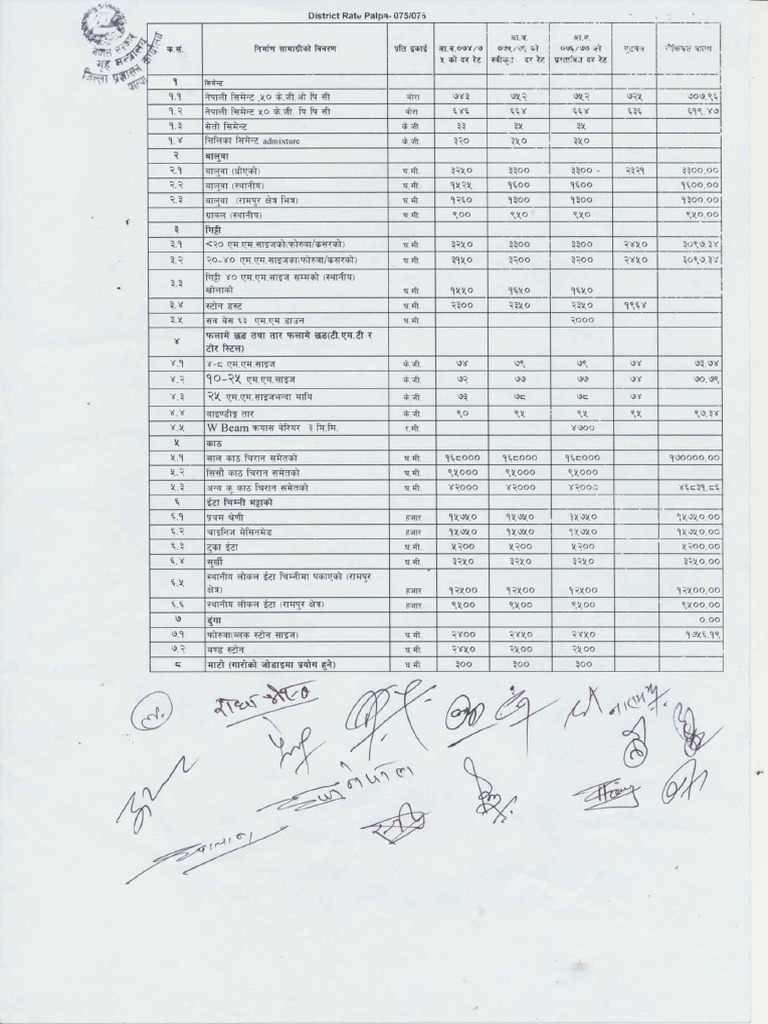 District Rate Palpa- 075/076
नेपाल सरकार
गृह मन्त्रालय
जिल्ला प्रशासन कार्यालय
पाल्पा
क.सं. निर्माण सामाग्रीको विवरण प्रति इकाई आ.व.०७४/७५ को दर रेट आ.व. ०७५/७६ को स्वीकृत दर रेट आ.व. ०७६/७७ को प्रस्तावित दर रेट
१ सिमेन्ट
१.१ नेपाली सिमेन्ट ,५० के.जी.ओ पि सी बोरा ७४३ ७५२ ७५२ ७२५ ७०७.९६
१.२ नेपाली सिमेन्ट ५० के.जी. पि पि सी बोरा ६४६ ६६४ ६६४ ६३६ ६१९.४७
१.३ सेतो सिमेन्ट के.जी ३३ ३५ ३५
१.४ सिलिका सिमेन्ट admixture के.जी ३२० ३५० ३५०
२ बालुवा
२.१ बालुवा (धोएको) घ.मी ३२५० ३३०० ३३०० - २३२१ ३३००.००
२.२ बालुवा (स्थानीय) घ.मी १५२५ १६०० १६०० १६००.००
२.३ बालुवा (रामपुर क्षेत्र भित्र) घ.मी १२६० १३०० १३०० १३००.००
ग्राबल (स्थानीय) घ.मी ९०० ९५० ९५० ९५०.००
३ गिट्टी
३.१ <२० एम.एम.साइजको(फोरुवा/कसरको) घ.मी ३२५० ३३०० ३३०० २४५० ३०९७.३४
३.२ २०-४० एम.एम.साइजका(फोरुवा/कसरको) घ.मी ३१५० ३२०० ३२०० २४५० ३०९७.३४
३.३ गिट्टी ४० एम.एम.साइज सम्मको (स्थानीय) खोलाको घ.मी १५५० १६५० १६५०
३.४ स्टोन डस्ट घ.मी २३०० २३५० २३५० १९६४
३.५ सव बेस ६३ एम.एम डाउन घ.मी. २०००
४ फलामे छड तथा तार फलामे छड(टी.एम.टी र टोर स्टिल)
४.१ ४-८ एम.एम.साइज के.जी. ७४ ७९ ७९ ७४ ७३.७४
४.२ १०-२५ एम.एम.साइज के.जी. ७२ ७७ ७७ ७४ ७०.७९
४.३ २५ एम.एम.साइजभन्दा माथि के.जी. ७३ ७८ ७८ ७४
४.४ बाइण्डीङ्ग तार के.जी. ९० ९५ ९५ ९५ ९७.३४
४.५ W Beam क्र्यास वेरियर ३ मि.मि. र.मी ४७००
५ काठ
५.१ साल काठ चिरान समेतको घ.मी. १६८००० १६८००० १६८००० १७००००.००
५.२ सिसौ काठ चिरान समेतको घ.मी. ९५००० ९५००० ९५०००
५.३ अन्य कु काठ चिरान समेतको घ.मी. ४२००० ४२००० ४२००० ४६८३१.८६
६ ईटा चिम्नी भट्टाको
६.१ प्रथम श्रेणी हजार १५७५० १५७५० १५७५० १५७५०.००
६.२ चाइनिज मेसिनमेड हजार १५७५० १५७५० १५७५० १५७५०.००
६.३ टुका ईटा घ.मी. ५२०० ५२०० ५२०० ५२००.००
६.४ सुर्खी घ.मी. ३२५० ३२५० ३२५० ३२५०.००
६.५ स्थानीय लोकल ईटा चिम्नीमा पकाएको (रामपुर क्षेत्र) हजार १२५०० १२५०० १२५०० १२५००.००
६.६ स्थानीय लोकल ईटा (रामपुर क्षेत्र) हजार ९५०० ९५०० ९५०० ९५००.००
७ ढुंगा ०.००
७.१ फोरुवा(ब्लक स्टोन साइज) घ.मी. २४०० २४५० २४५० १७५६.१९
७.२ बण्ड स्टोन घ.मी. २४५० २५०० २५००
८ माटो (गारोको जोडाइमा प्रयोग हुने) घ.मी ३०० ३०० ३००